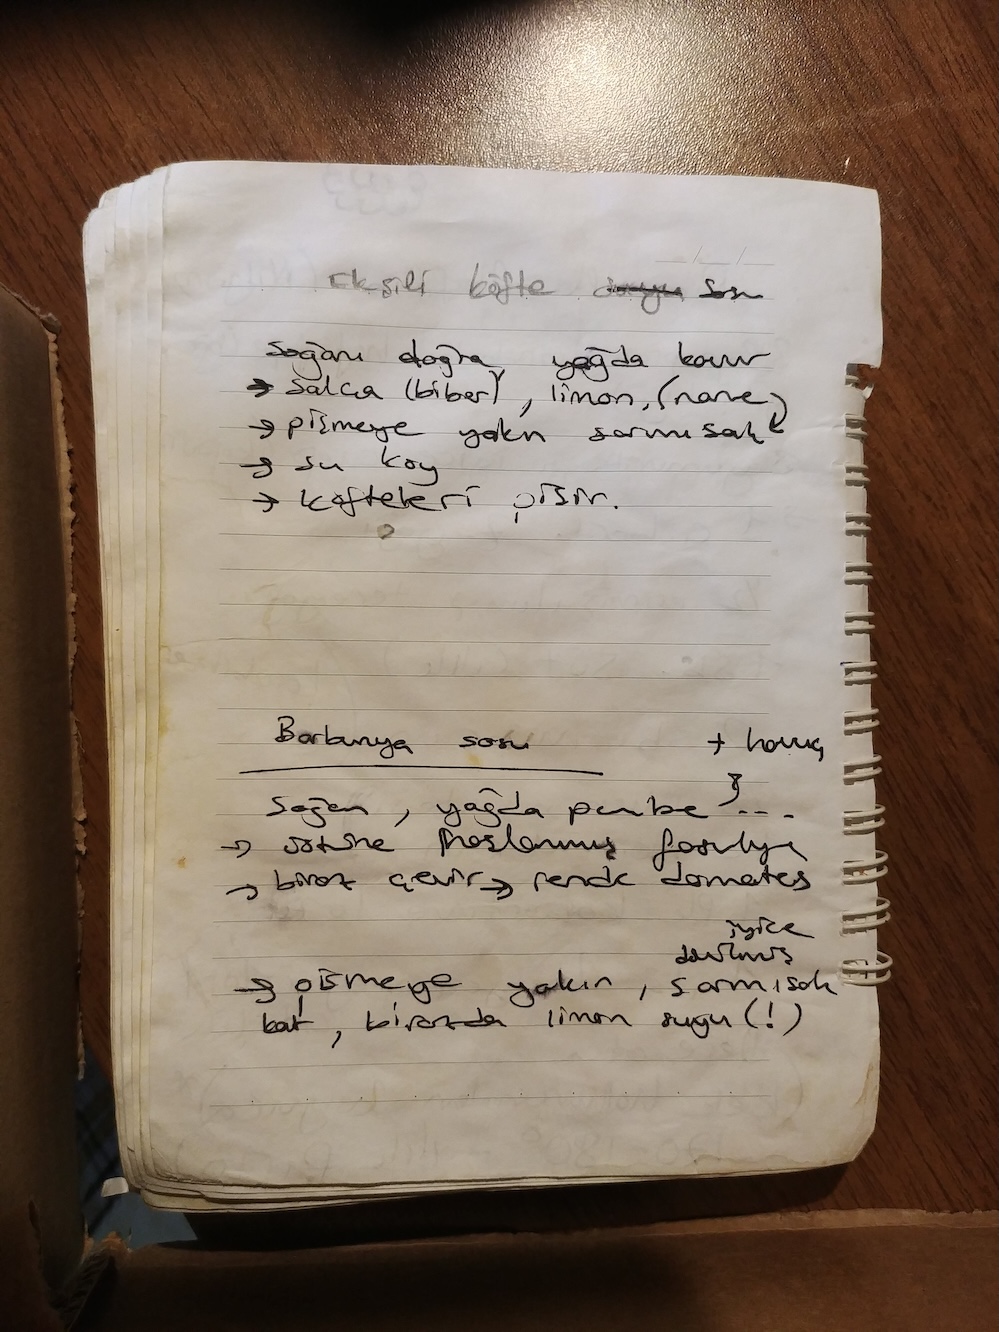 Ekşili köfte sosu
soğanı doğra, yağda kavur
→ salça (biber), limon, (nane)
→ pişmeye yakın sarmısak
→ su koy
→ köfteleri pişir.
Barbunya sosu + havuç
Soğan, yağda pembe ...
→ üstüne haşlanmış fasulye
→ biraz çevir → rende domates
iyice
dövülmüş
→ pişmeye yakın, sarmısak
kat, biraz da limon suyu (!)